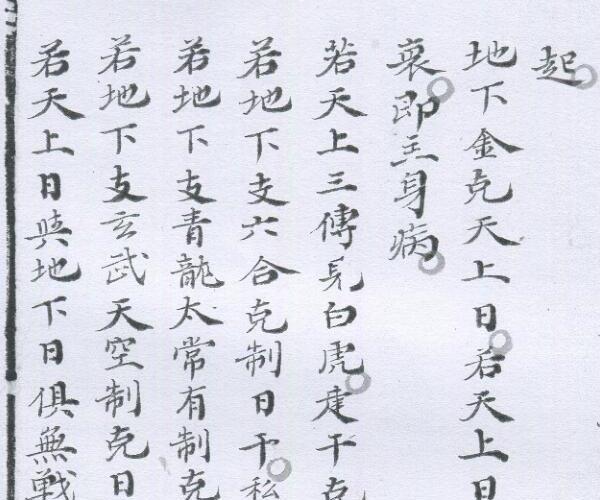 起
地下金克天上日若天上日
衰即主身病
若天上三傳見白虎建干克
若地下支六合克制日干私
若地下支青龍太常有制克
若地下支玄武天空制克日
若天上日與地下日俱無戰